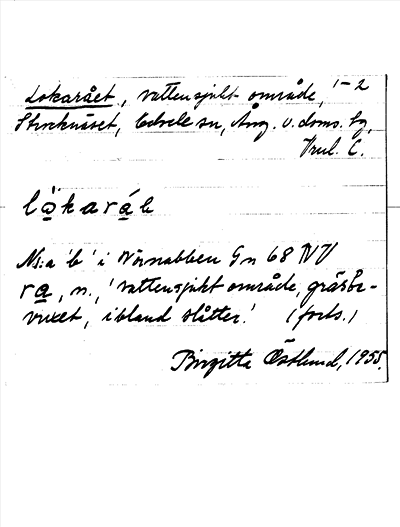 Lokarået, vattensjukt område, 1-2
Stocknäset, sn, Ång. v. doms. lg,
Vrul. C.
lökaråe
N:a 'b' i Nörnabben Gn 68 NV
ra, n., 'vattensjukt område, gräsbe-
vuxet, ibland slåtter.' (forts.)
Birgitta Östlund, 1955.